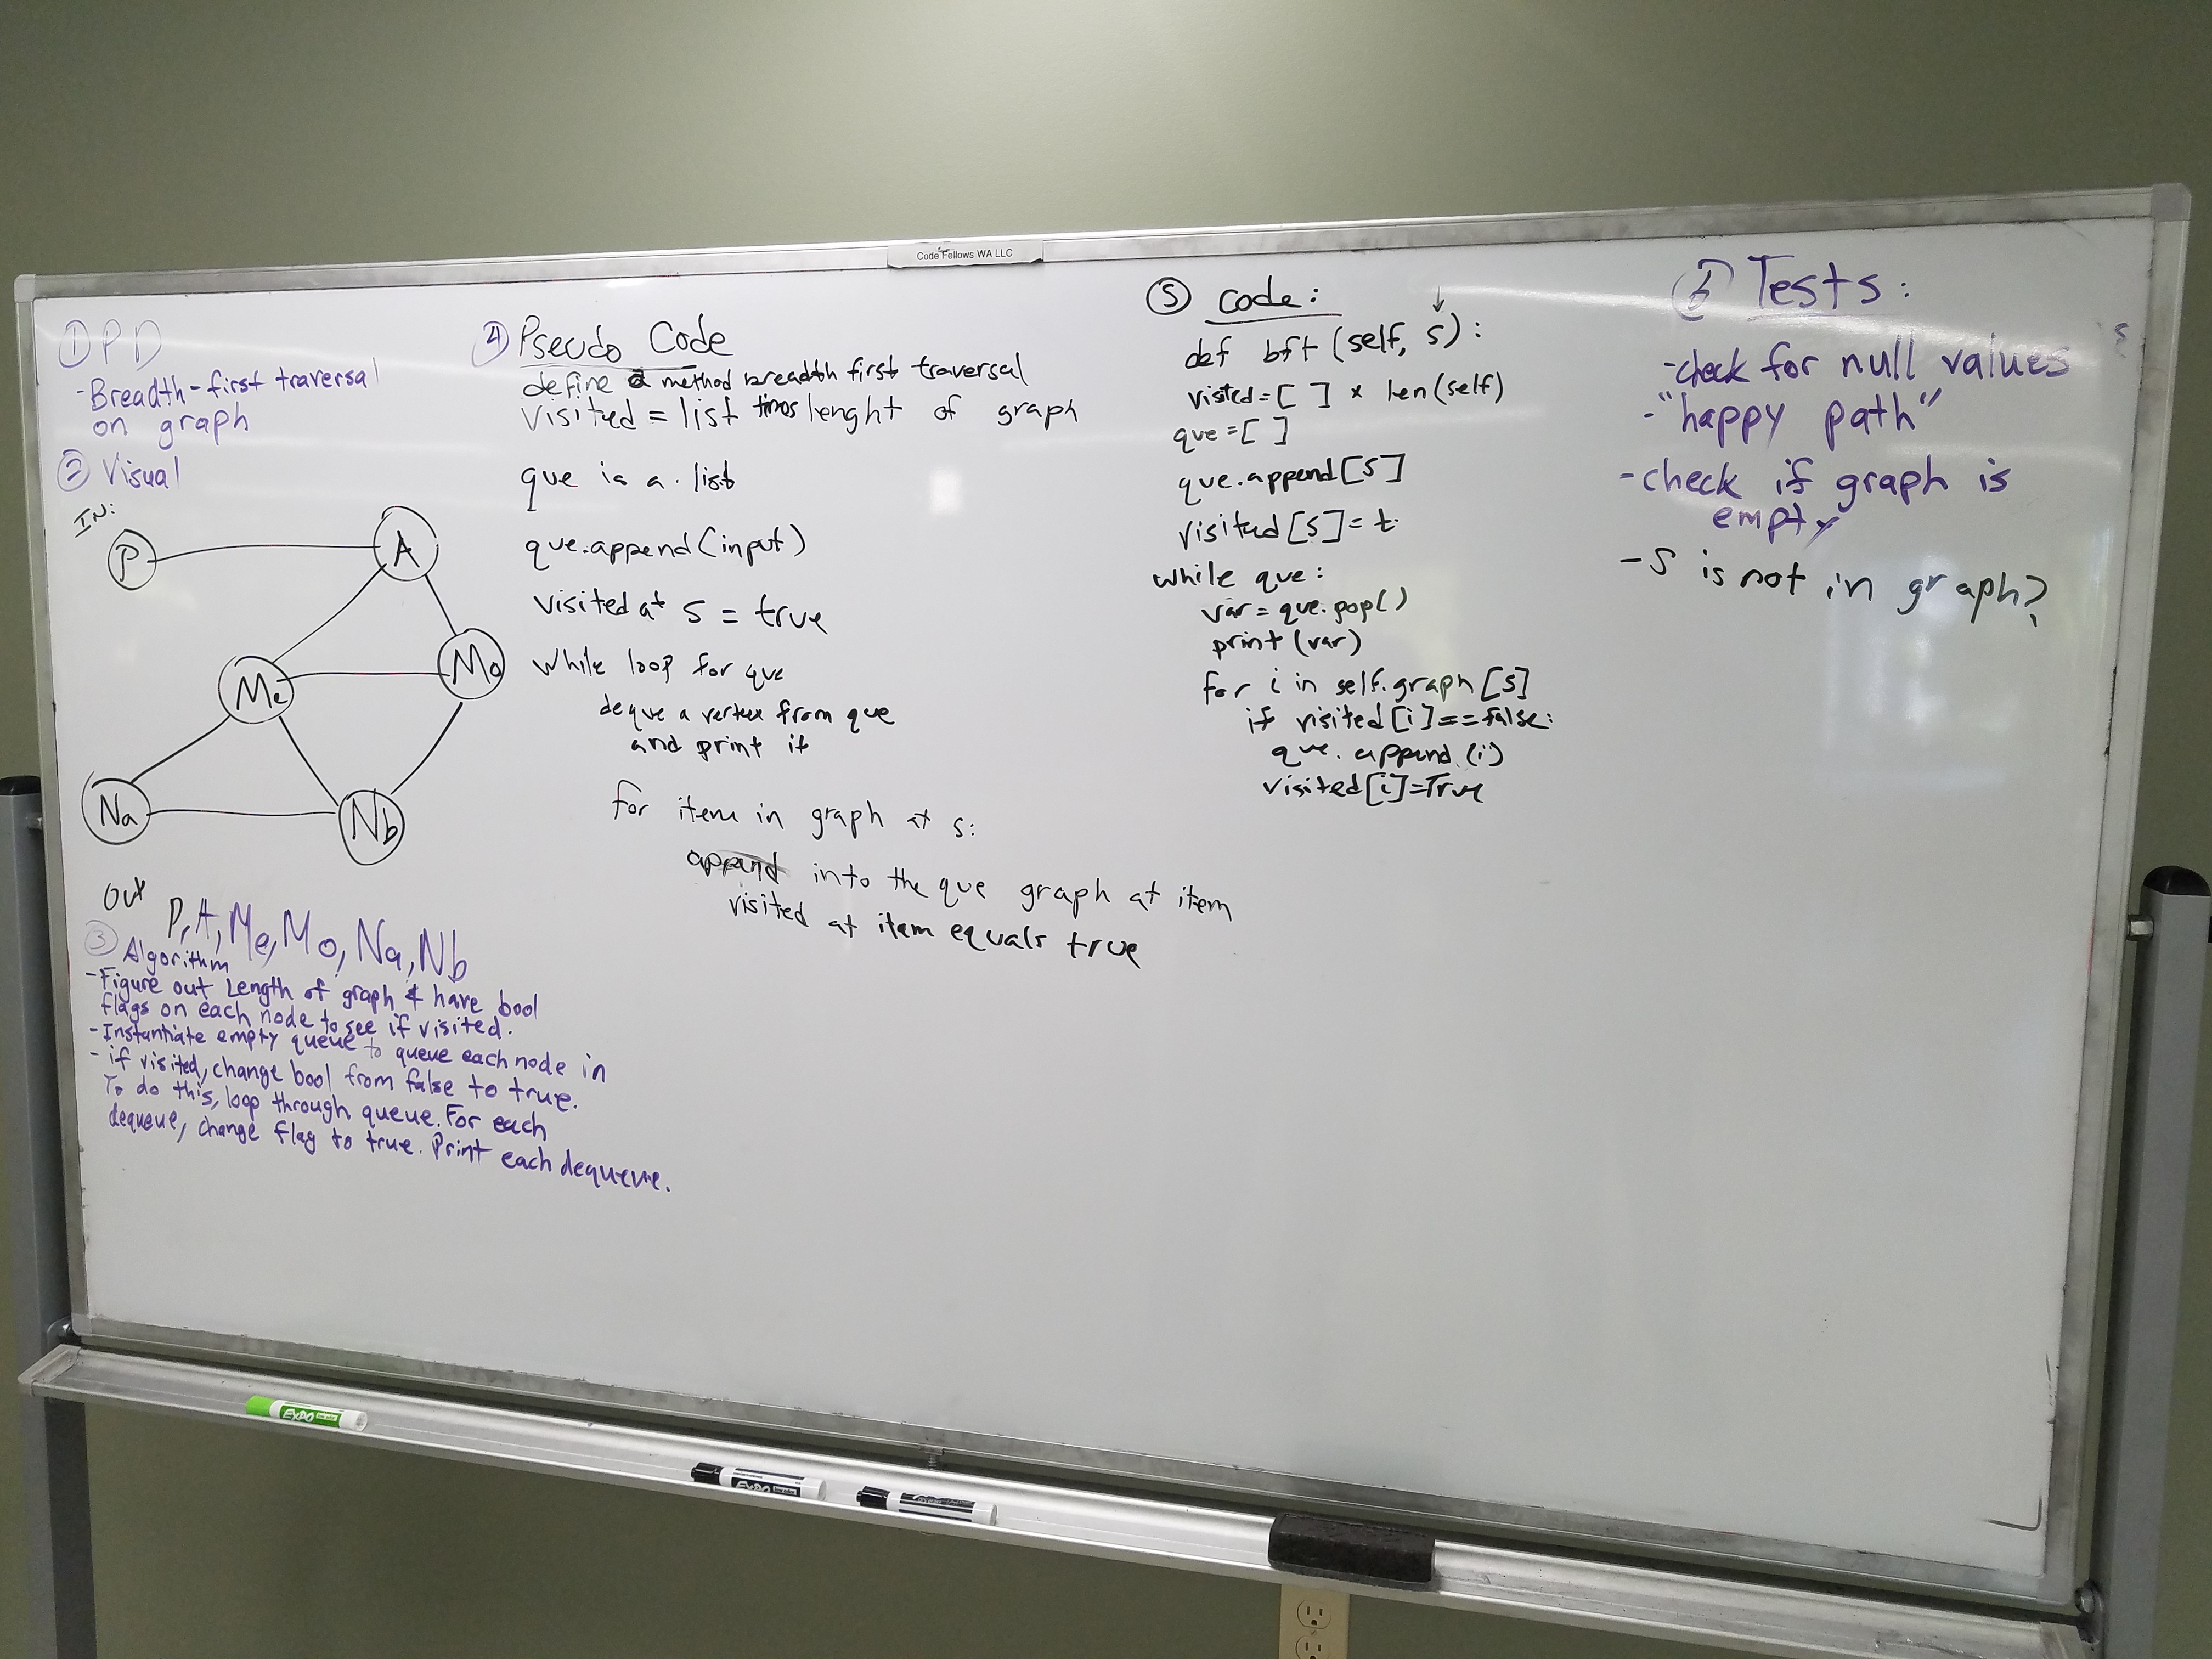 Code Fellows WA LLC
① PD
- Breadth-first traversal
on graph
② Visual
IN:
P
A
Me
Mo
Na
Nb
Out
P, A, Me, Mo, Na, Nb
③ Algorithm
- Figure out Length of graph & have bool
flags on each node to see if visited.
- Instantiate empty queue to queue each node in
- if visited, change bool from false to true.
To do this, loop through queue. For each
dequeue, change flag to true. Print each dequeue.
④ Pseudo Code
define a method breadth first traversal
visited = list times lenght of graph
que is a list
que.append(input)
visited at s = true
while loop for que
deque a vertex from que
and print it
for item in graph at s:
append into the que graph at item
visited at item equals true
⑤ code:
def bft (self, s):
visted = [ ] * len(self)
que = [ ]
que.append[s]
visited [s] = t
while que:
var = que.pop()
print (var)
for i in self.graph [s]
if visited [i] == false:
que.append (i)
visited [i] = True
⑥ Tests:
- check for null values
- "happy path"
- check if graph is
empty
- s is not in graph?
s
EXPO
EXPO